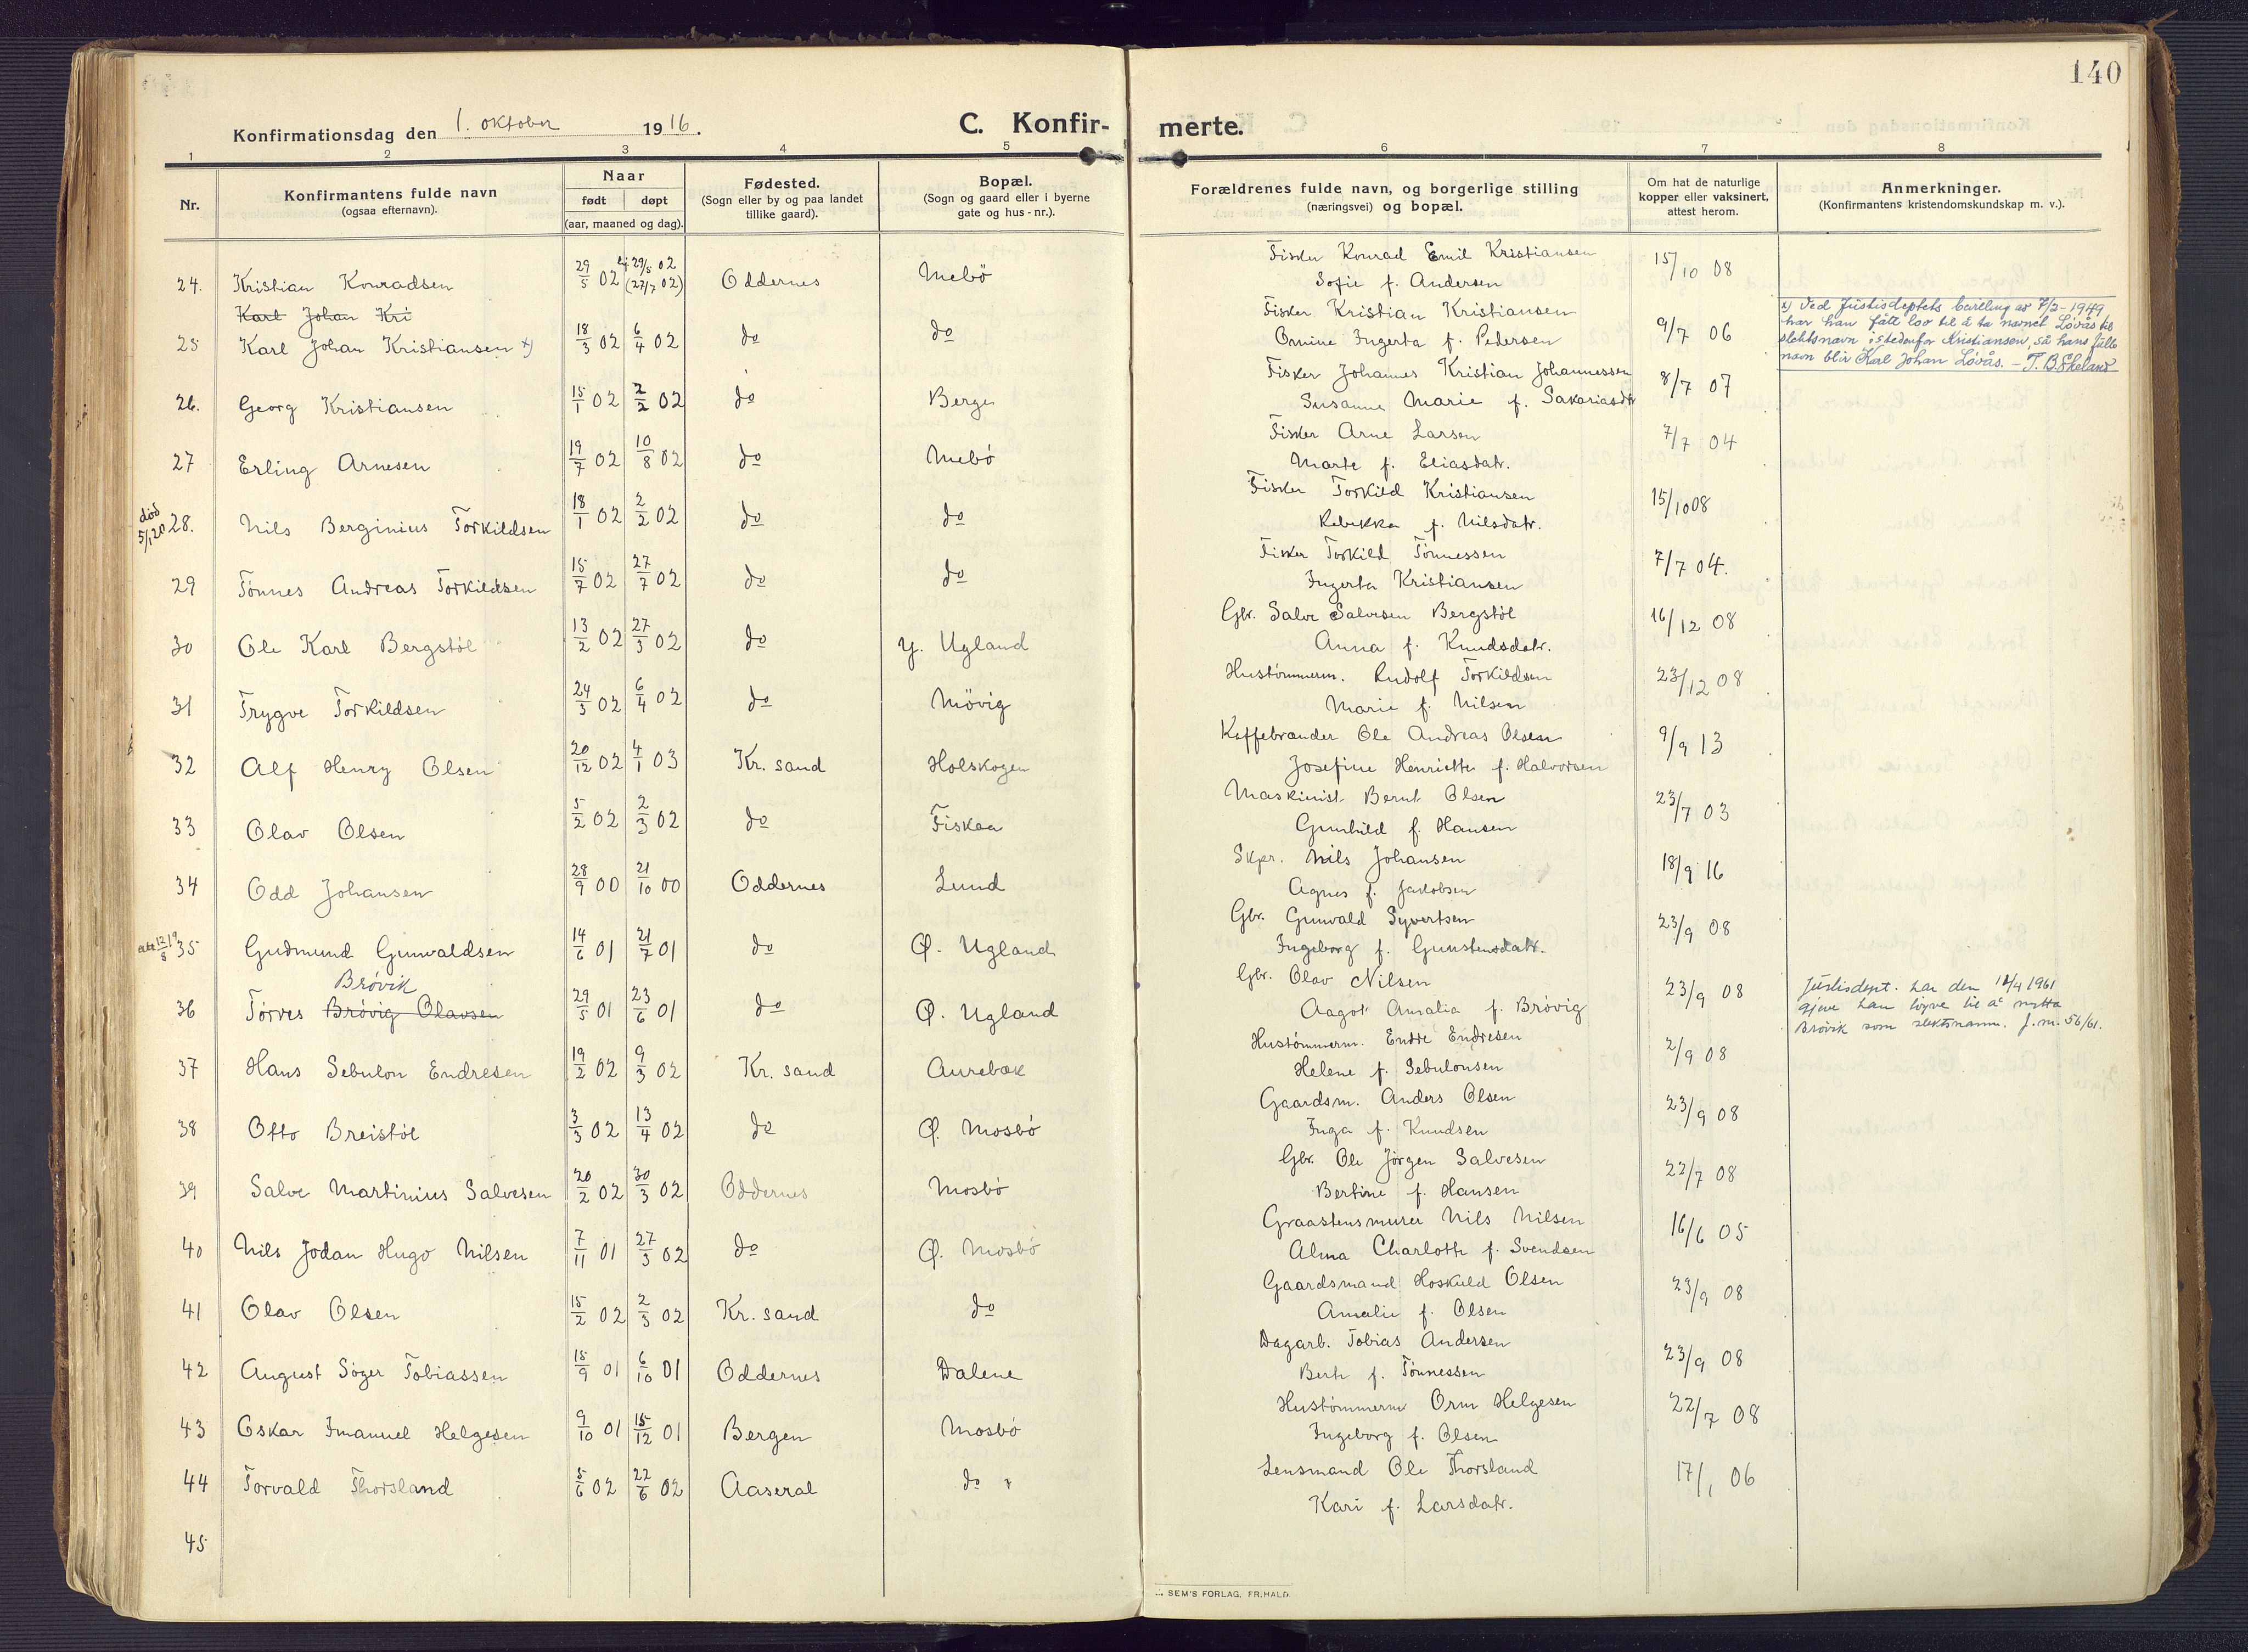 140
Konfirmationsdag den 1. oktober 1916.
C. Konfir-
merte.
1 2 3 4 5 6 7 8
Nr.
Konfirmantens fulde navn
(ogsaa efternavn).
Naar
født døpt
(aar, maaned og dag).
Fødested.
(Sogn eller by og paa landet
tillike gaard).
Bopæl.
(Sogn og gaard eller i byerne
gate og hus-nr.).
Forældrenes fulde navn, og borgerlige stilling
(næringsvei) og bopæl.
Om hat de naturlige
kopper eller vaksinert,
attest herom.
Anmerkninger.
(Konfirmantens kristendomskundskap m. v.).
24. Kristian Konradsen 29/5 02 29/5 02 (27/7 02) Oddernes Mebö
Fisker Konrad Emil Kristiansen 15/10 08
Sofie f. Andersen
Karl Johan Kri
25 Karl Johan Kristiansen x) 18/3 02 6/4 02 do do
Fisker Kristian Kristiansen 9/7 06
Omine Ingerta f. Pedersen
x) Ved Justisdeptets bevilling av 7/2-1949
har han fått lov til å ta navnet Løvås til
slektsnavn istedenfor Kristiansen, så hans fulle
navn blir Karl Johan Løvås. – T.B.Ekeland
26. Georg Kristiansen 15/1 02 2/2 02 do Berge
Fisker Johannes Kristian Johannessen 8/7 07
Susanne Marie f. Sakariasdtr
27 Erling Arnesen 19/7 02 10/8 02 do Mebö
Fisker Arne Larsen 7/7 04
Marte f. Eliasdatr.
død
5/1 20 28. Nils Berginius Torkildsen 18/1 02 2/2 02 do do
Fisker Torkild Kristiansen 15/10 08
Rebekka f. Nilsdatr.
29 Tönnes Andreas Torkildsen 15/7 02 27/7 02 do do
Fisker Torkild Tönnessen 7/7 04.
Ingerta Kristiansen
30 Ole Karl Bergstöl 13/2 02 27/3 02 do Y. Ugland
Gbr. Salve Salvesen Bergstöl 16/12 08
Anna f. Knudsdatr.
31 Trygve Torkildsen 24/3 02 6/4 02 do Mövig
Hustömmerm. Rudolf Torkildsen 23/12 08
Marie f. Nilsen
32 Alf Henry Olsen 20/12 02 4/1 03 Kr. sand Holskogen
Kaffebrænder Ole Andreas Olsen 9/9 13
Josefine Henriette f. Halvorsen
33 Olav Olsen 5/2 02 2/3 02 do Fiskaa
Maskinist Bernt Olsen 23/7 03
Gunhild f. Hansen
34 Odd Johansen 28/9 00 21/10 00 Oddernes Lund
Skpr. Nils Johansen 18/9 16
Agnes f. Jakobsen
att 12/5 19 35 Gudmund Gunvaldsen 14/6 01 21/7 01 do Ø. Ugland
Gbr. Gunvald Syvertsen 23/9 08
Ingeborg f. Gunstensdatr.
Brövik
36 Törres Brövig Olavsen 29/5 01 23/6 01 do Ø. Ugland
Gbr. Olav Nilsen 23/9 08
Aagot Amalia f. Brövig
Justisdept. har den 18/4 1961
gjeve han löyve til å nytta
Brövik som slektsnamn. J.nr. 56/61.
37 Hans Sebulon Endresen 19/2 02 9/3 02 Kr. sand Aurebæk
Hustömmerm. Endre Endresen 2/9 08
Helene f. Sebulonsen
38 Otto Breistöl 3/3 02 13/4 02 do Ø. Mosbö
Gaardsm. Anders Olsen 23/9 08
Inga f. Knudsen
39 Salve Martinius Salvesen 20/2 02 30/3 02 Oddernes Mosbö
Gbr. Ole Jörgen Salvesen 22/7 08
Bertine f. Hansen
40 Nils Jodan Hugo Nilsen 7/11 01 27/3 02 do Ø. Mosbö
Graastensmurer Nils Nilsen 16/6 05
Alma Charlotte f. Svendsen
41 Olav Olsen 15/2 02 2/3 02 Kr. sand do
Gaardsmand Hoskuld Olsen 23/9 08
Amalie f. Olsen
42 August Söger Tobiassen 15/9 01 6/10 01 Oddernes Dalene
Dagarb. Tobias Andersen 23/9 08
Berte f. Tönnessen
43 Oskar Imanuel Helgesen 9/10 01 15/12 01 Bergen Mosbö
Hustömmerm Orm Helgesen 22/7 08
Ingeborg f. Olsen
44 Torvald Thorsland 5/6 02 22/6 02 Aaseral do
Lensmand Ole Thorsland 17/1 06
Kari f. Larsdatr.
45
SEM'S FORLAG, FR.HALD